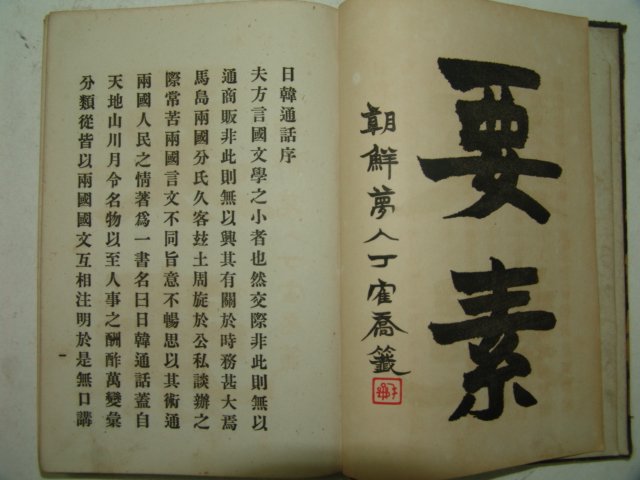 要素
朝鮮夢人丁寉喬籤
日韓通話序
夫方言國文學之小者也然交際非此則無以
通商販非此則無以興其有關於時務甚大焉
馬島兩國分氏久客玆土周旋於公私談辦之
際常苦兩國言文不同旨意不暢思以其術通
兩國人民之情著爲一書名曰日韓通話蓋自
天地山川月令名物以至人事之酬酢萬變彙
分類從皆以兩國國文互相注明於是無口講
一